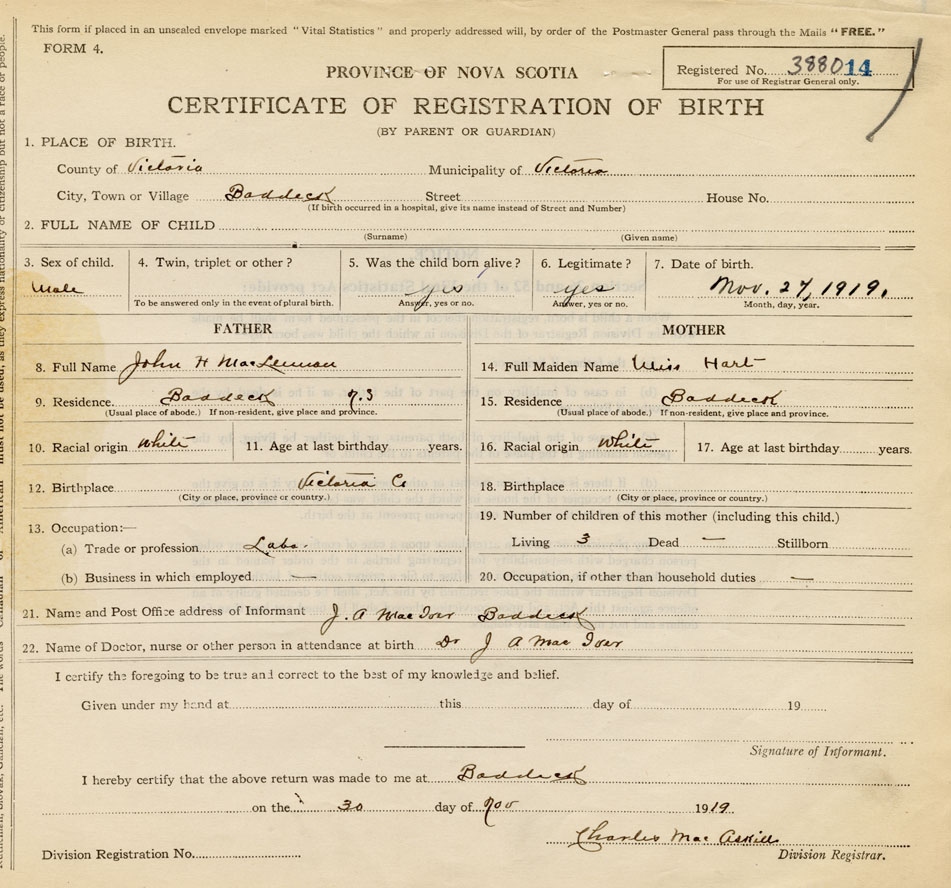 This form if placed in an unsealed envelope marked "Vital Statistics" and properly addressed will, by order of the Postmaster General pass through the Mails "FREE."
FORM 4.
Registered No. 388014
For use of Registrar General only.
PROVINCE OF NOVA SCOTIA
CERTIFICATE OF REGISTRATION OF BIRTH
(BY PARENT OR GUARDIAN)
1. PLACE OF BIRTH.
County of Victoria Municipality of Victoria
City, Town or Village Baddeck Street House No.
(If birth occurred in a hospital, give its name instead of Street and Number)
2. FULL NAME OF CHILD
(Surname) (Given name)
3. Sex of child. 4. Twin, triplet or other? 5. Was the child born alive? 6. Legitimate? 7. Date of birth.
Male yes yes Nov. 27, 1919.
To be answered only in the event of plural birth. Answer, yes or no. Answer, yes or no. Month, day, year.
FATHER
8. Full Name John H MacLennan
9. Residence. Baddeck
(Usual place of abode.) If non-resident, give place and province.
10. Racial origin White 11. Age at last birthday years.
12. Birthplace Victoria Co
(City or place, province or country.)
13. Occupation:—
(a) Trade or profession Labr.
(b) Business in which employed —
MOTHER
14. Full Maiden Name Miss Hart
15. Residence Baddeck
(Usual place of abode.) If non-resident, give place and province.
16. Racial origin White 17. Age at last birthday years.
18. Birthplace
(City or place, province or country.)
19. Number of children of this mother (including this child.)
Living 3 Dead — Stillborn
20. Occupation, if other than household duties —
21. Name and Post Office address of Informant J. A MacIver Baddeck
22. Name of Doctor, nurse or other person in attendance at birth Dr J A MacIver
I certify the foregoing to be true and correct to the best of my knowledge and belief.
Given under my hand at this day of 19
Signature of Informant.
I hereby certify that the above return was made to me at Baddeck
on the 30 day of Nov 1919.
Charles MacAskill
Division Registration No. Division Registrar.